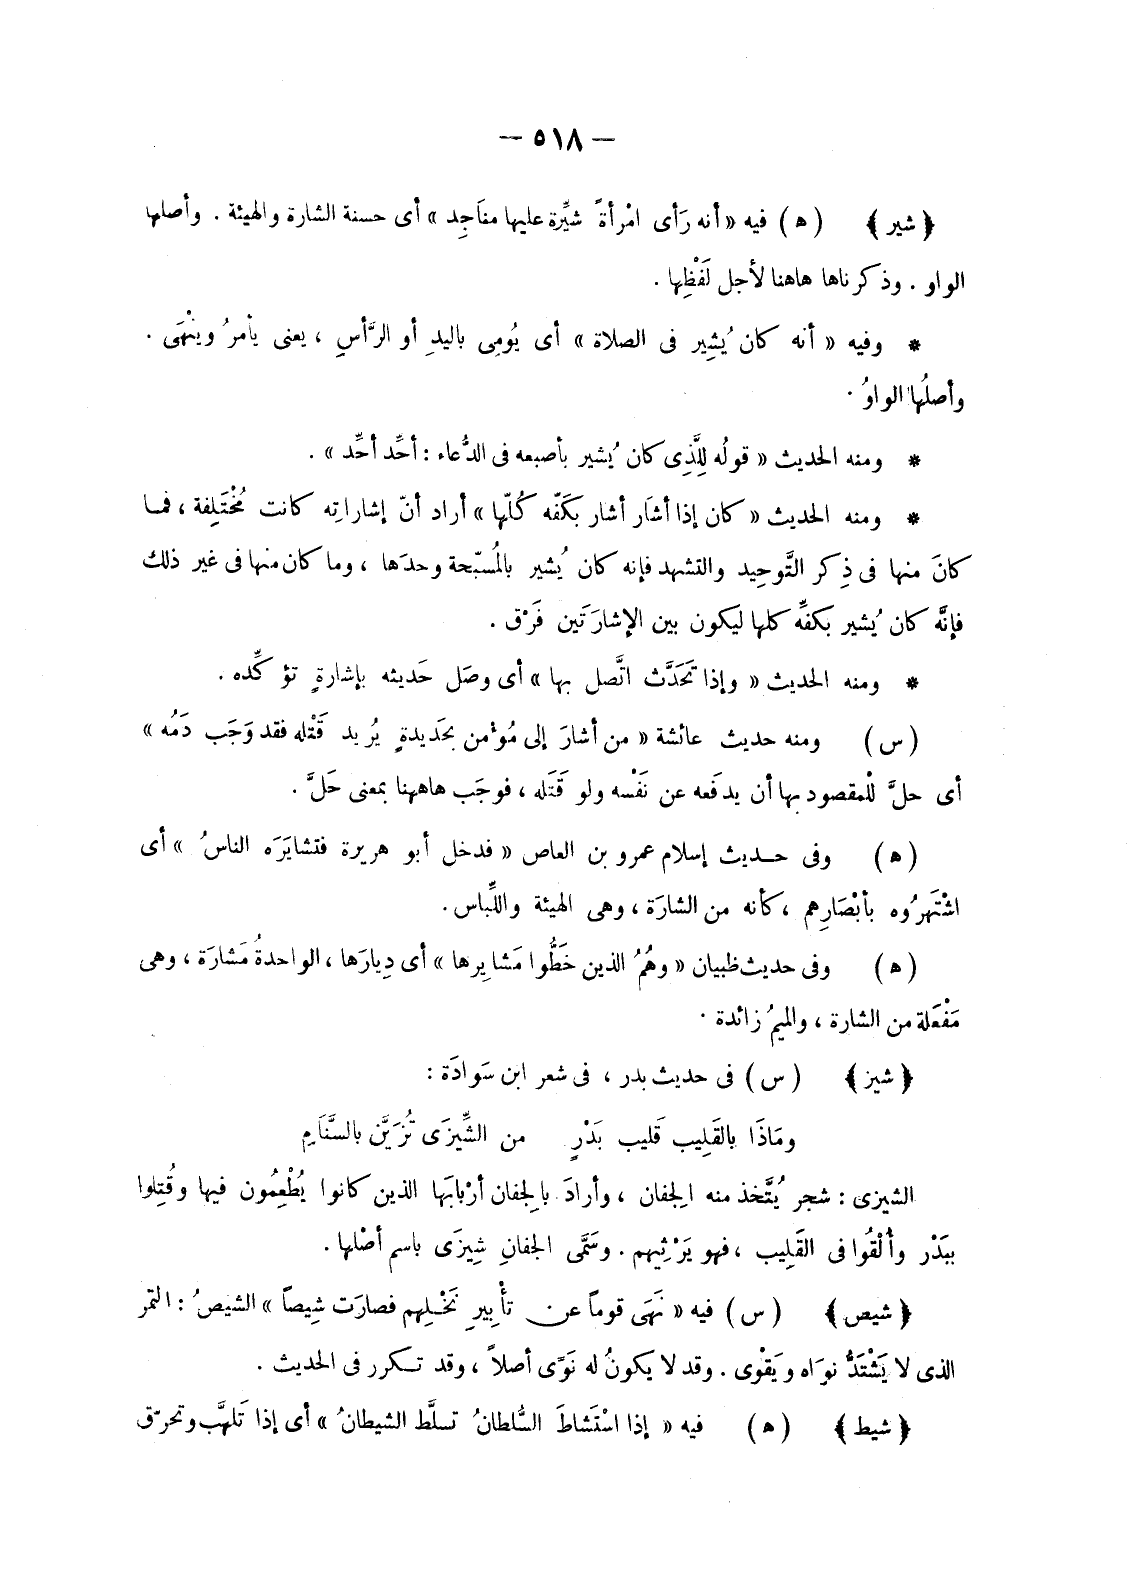 — ٥١٨ —
﴿ شير ﴾ ( ه ) فيه « أنه رَأى امْرأةً شَيِّرة عليها مناَجِد » أى حسنة الشارة والهيئة . وأصلها
الواو . وذكرناها هاهنا لأجل لَفْظِها .
* وفيه « أنه كان يُشِير فى الصلاة » أى يُومِى باليدِ أو الرَّأسِ ، يعنى يأمرُ وينْهَى .
وأصلُها الواوُ .
* ومنه الحديث « قولُه لِلَّذِى كان يُشير بأصبعه فى الدُّعاء : أحِّد أحِّد » .
* ومنه الحديث « كان إذا أشاَر أشار بكَفّه كُلّها » أراد أنّ إشاراتِه كانت مُخْتَلِفة ، فمــا
كانَ منها فى ذِكر التَّوحِيد والتشهد فإنه كان يُشير بالمُسبّحة وحدَها ، وما كان منها فى غير ذلك
فإنَّه كان يُشير بكفِّه كلها ليكون بين الإشارَتَين فَرْق .
* ومنه الحديث « وإذا تَحَدَّث اتَّصل بها » أى وصَل حَديثه بإشارةٍ تؤكِّده .
( س ) ومنه حديث عائشة « من أشارَ إلى مُوْمن بحَديدةٍ يُريد قَتْله فقد وَجَب دَمُه »
أى حلَّ للْمقصود بها أن يدفَعه عن نَفْسه ولو قَتَله ، فوجَب هاهنا بمعنى حَلَّ .
( ه ) وفى حــديث إسلام عمرو بن العاص « فدخل أبو هريرة فتشايَرَه الناسُ » أى
اشْتَهرُوه بأبْصَارِهم ، كأنه من الشارَة ، وهى الهيئة واللِّباس .
( ه ) وفى حديث ظبيان « وهُمُ الذين خَطُّوا مَشايِرها » أى دِيارَها ، الواحدةُ مَشارَة ، وهى
مَفْعَلة من الشارة ، والميمُ زائدة .
﴿ شيز ﴾ ( س ) فى حديث بدر ، فى شعر ابن سَوادَة :
ومَاذَا بالقَلِيب قَليب بَدْرٍ من الشِّيزَى تُزَيَّن بالسَّنَامِ
الشيزى : شجر يُتَّخذ منه الجِفان ، وأرادَ بالجِفان أرْبابَها الذين كانوا يُطْعِمُون فيها وقُتِلوا
ببَدْر وأُلْقُوا فى القَلِيب ، فهو يَرْثِيهم . وسَمَّى الجفانِ شِيزَى باسم أصْلها .
﴿ شيص ﴾ ( س ) فيه « نَهَى قوماً عن تأْبيرِ نَخْلِهم فصارَت شِيصاً » الشيصُ : التمر
الذى لا يَشْتَدُّ نوَاه ويَقْوى . وقد لا يكونُ له نَوًى أصلاً ، وقد تـكرر فى الحديث .
﴿ شيط ﴾ ( ه ) فيه « إذا اسْتَشاطَ السُّلطانُ تسلَّط الشيطانُ » أى إذا تَلهَّب وتحرّق